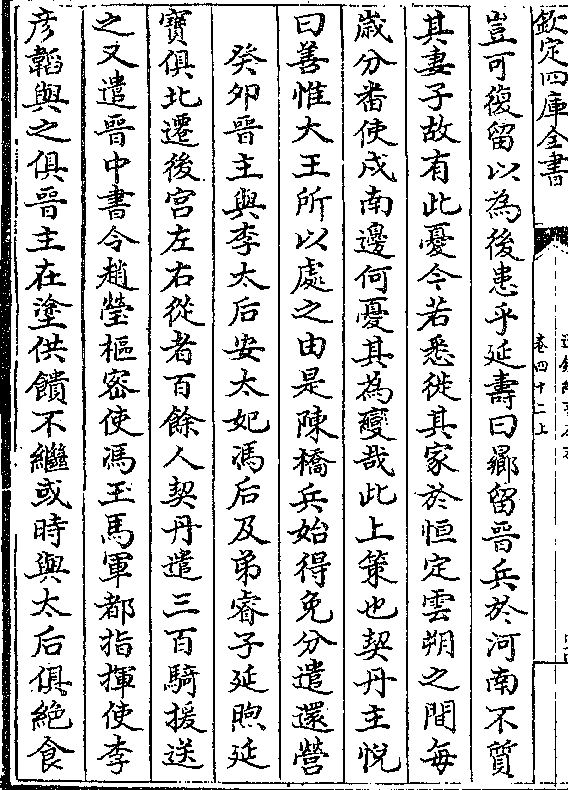 欽定四庫全書
卷四十二上
豈可復留以為後患乎延壽曰曏留晉兵於河南不質
其妻子故有此憂今若悉徙其家於恒定雲朔之間每
歲分番使戍南邊何憂其為變哉此上策也契丹主悅
曰善惟大王所以處之由是陳橋兵始得免分遣還營
癸卯晉主與李太后安太妃馮后及弟睿子延煦延
寶俱北遷後宫左右從者百餘人契丹遣三百騎援送
之又遣晉中書令趙瑩樞密使馮玉馬軍都指揮使李
彦韜與之俱晉主在塗供饋不繼或時與太后俱絶食